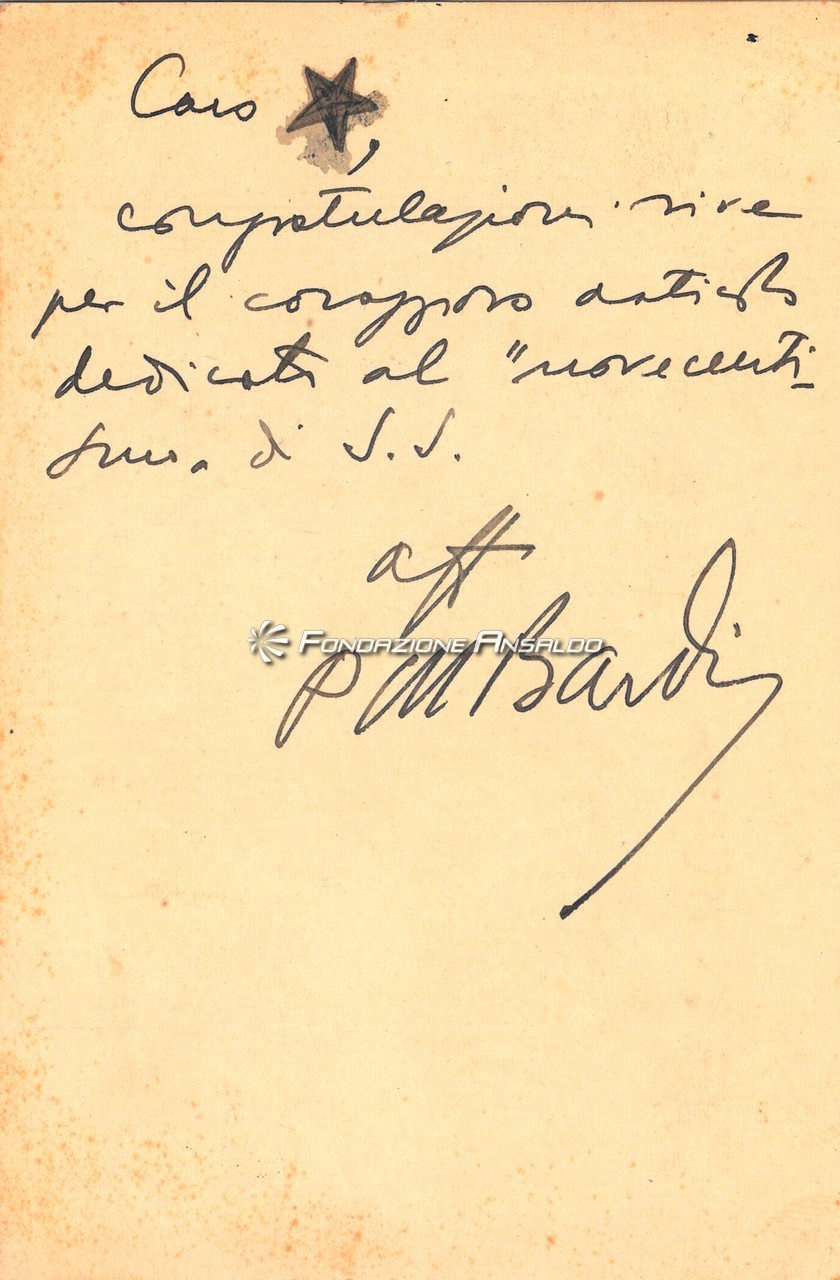 Caro ★,
congratulazioni vive
per il coraggioso articolo
dedicato al "novecenti-
smo" di S.S.
aff
P M Bardi
Fondazione Ansaldo